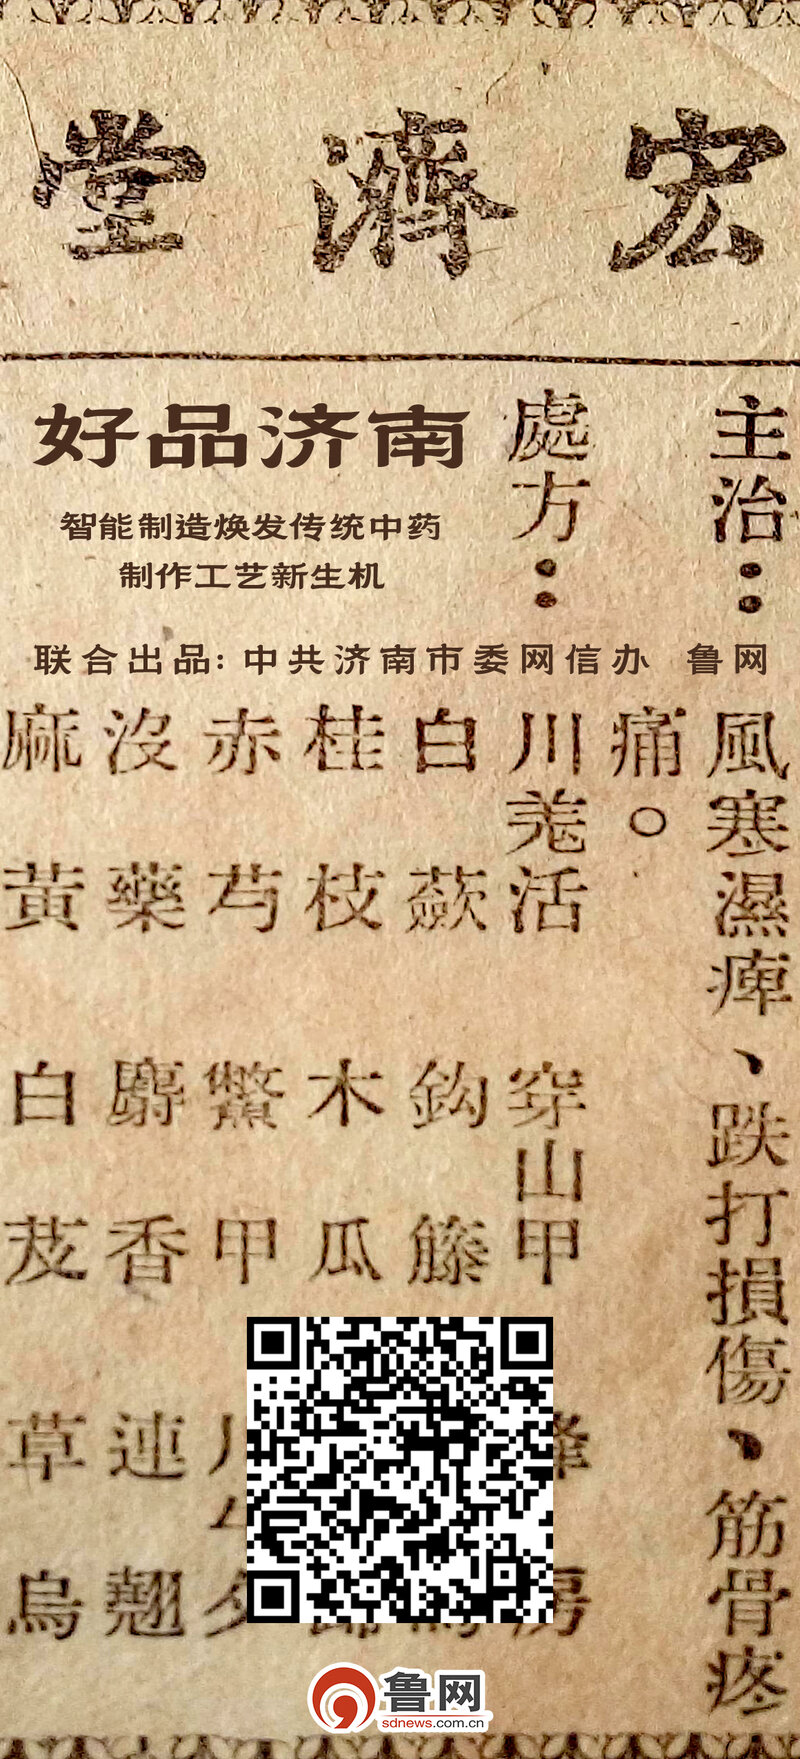 宏濟堂
好品济南
智能制造焕发传统中药
制作工艺新生机
联合出品: 中共济南市委网信办 鲁网
主治：風寒濕痺、跌打損傷、筋骨疼
痛。
處方：川羌活 穿山甲
白蘞 鈎藤
桂枝 木瓜
赤芍 鱉甲
沒藥 麝香 連翹
麻黃 白芨 草烏
鲁网
sdnews.com.cn